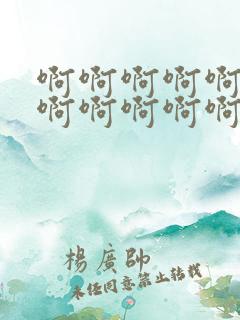 啊啊啊啊啊
啊啊啊啊啊
楊廣帥
未经同意禁止转载